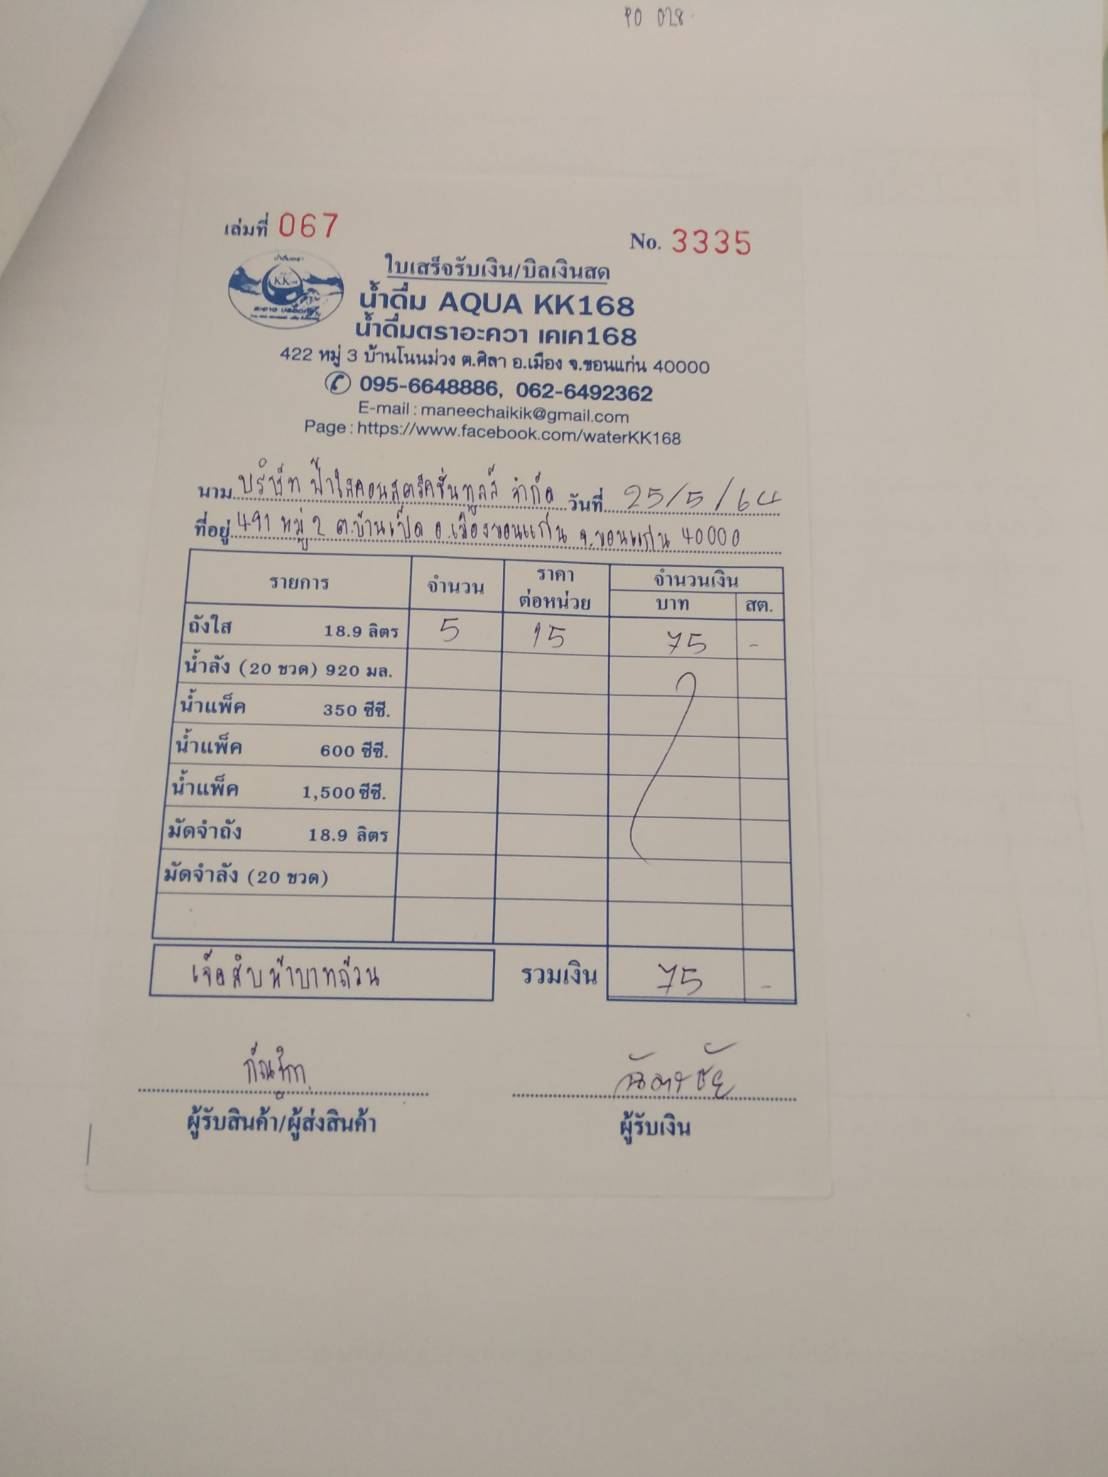 PO 028
เล่มที่ 067
No. 3335
ใบเสร็จรับเงิน/บิลเงินสด
KK
น้ำดื่ม AQUA KK168
น้ำดื่มตราอะควา เคเค168
422 หมู่ 3 บ้านโนนม่วง ต.ศิลา อ.เมือง จ.ขอนแก่น 40000
095-6648886, 062-6492362
E-mail : maneechaikik@gmail.com
Page : https://www.facebook.com/waterKK168
นาม บริษัท ฟ้าใสคอนสตรัคชั่นทูลส์ จำกัด วันที่ 25/5/64
ที่อยู่ 491 หมู่ 2 ต.บ้านเป็ด อ.เมืองขอนแก่น จ.ขอนแก่น 40000
รายการ จำนวน ราคาต่อหน่วย จำนวนเงิน
บาท สต.
ถังใส 18.9 ลิตร 5 15 75 -
น้ำลัง (20 ขวด) 920 มล.
น้ำแพ็ค 350 ซีซี.
น้ำแพ็ค 600 ซีซี.
น้ำแพ็ค 1,500 ซีซี.
มัดจำถัง 18.9 ลิตร
มัดจำลัง (20 ขวด)
เจ็ดสิบห้าบาทถ้วน รวมเงิน 75 -
ฉัตรชัย
ผู้รับสินค้า/ผู้ส่งสินค้า ผู้รับเงิน